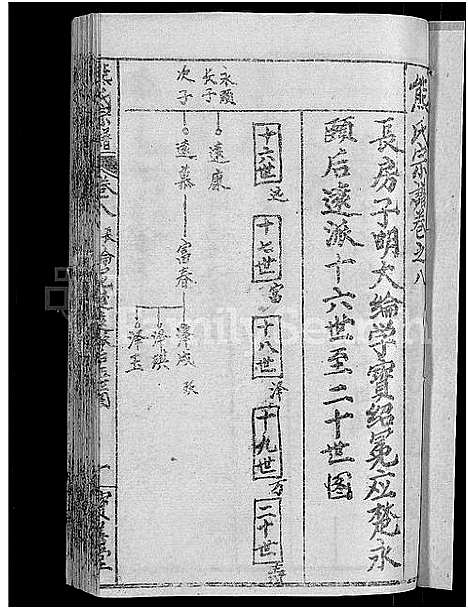 熊氏宗譜卷之八
長房子明大綸学寳紹冕应楚永
頤后遠派十六世至二十世图
十六世 远
十七世 富
十八世 泽
十九世 万
二十世
永頤
長子
遠康
次子
遠慕
富春
澤成
澤琪
澤玉
熊氏宗譜
卷八